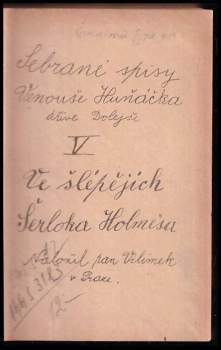 Sebrané spisy
Venouše Huňáčka
dříve Dolejše
V
Ve šlépějích
Šerloka Holmesa
Naložil pan Vilímek
v Praze.
12-